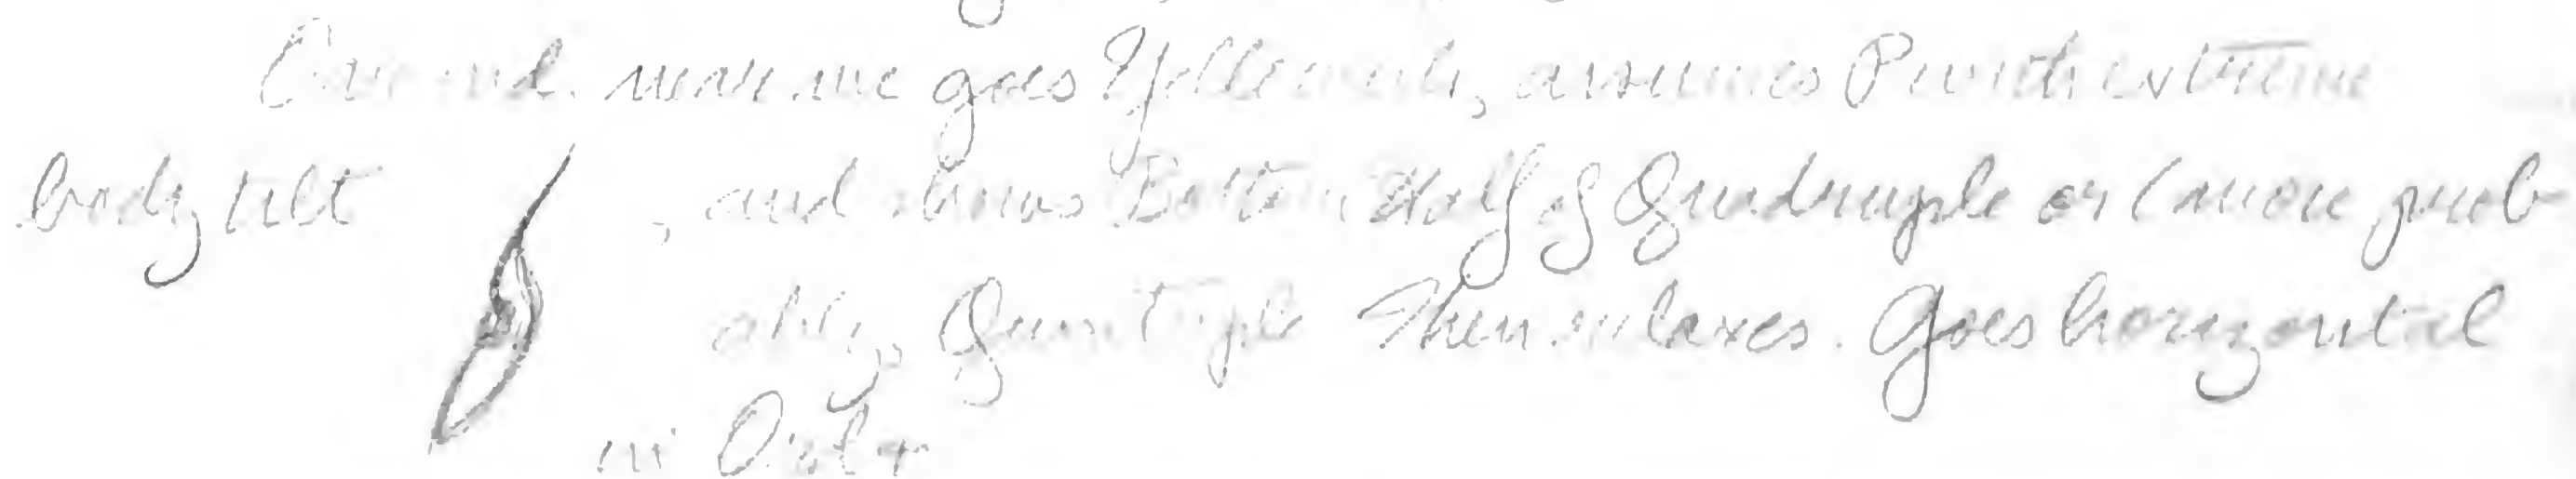 and. goes Yellowish, assumes P with extreme
body tilt , and shows Bottom Half of Quadruple or (more prob-
ably, Quintuple Then relaxes. Goes horizontal
in